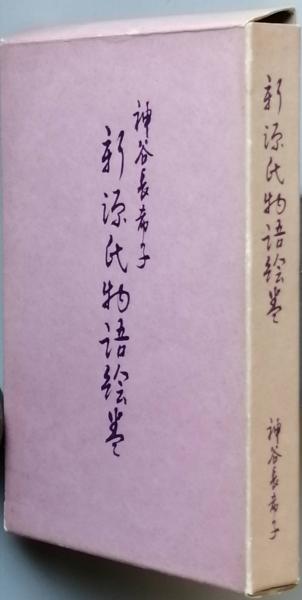 神谷長希子
新源氏物語絵巻
新源氏物語絵巻
神谷長希子